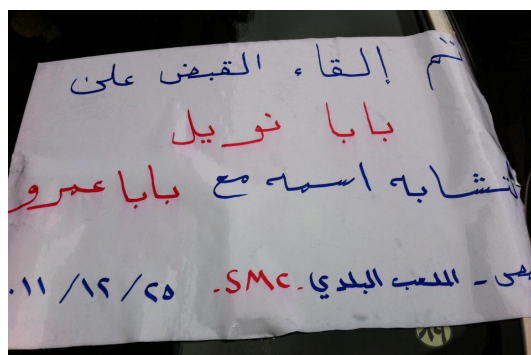 تم إلقاء القبض على
بابا نويل
لتشابه اسمه مع بابا عمرو
حمص - الملعب البلدي . SMC . ٢٥ / ١٢ / ٠١١